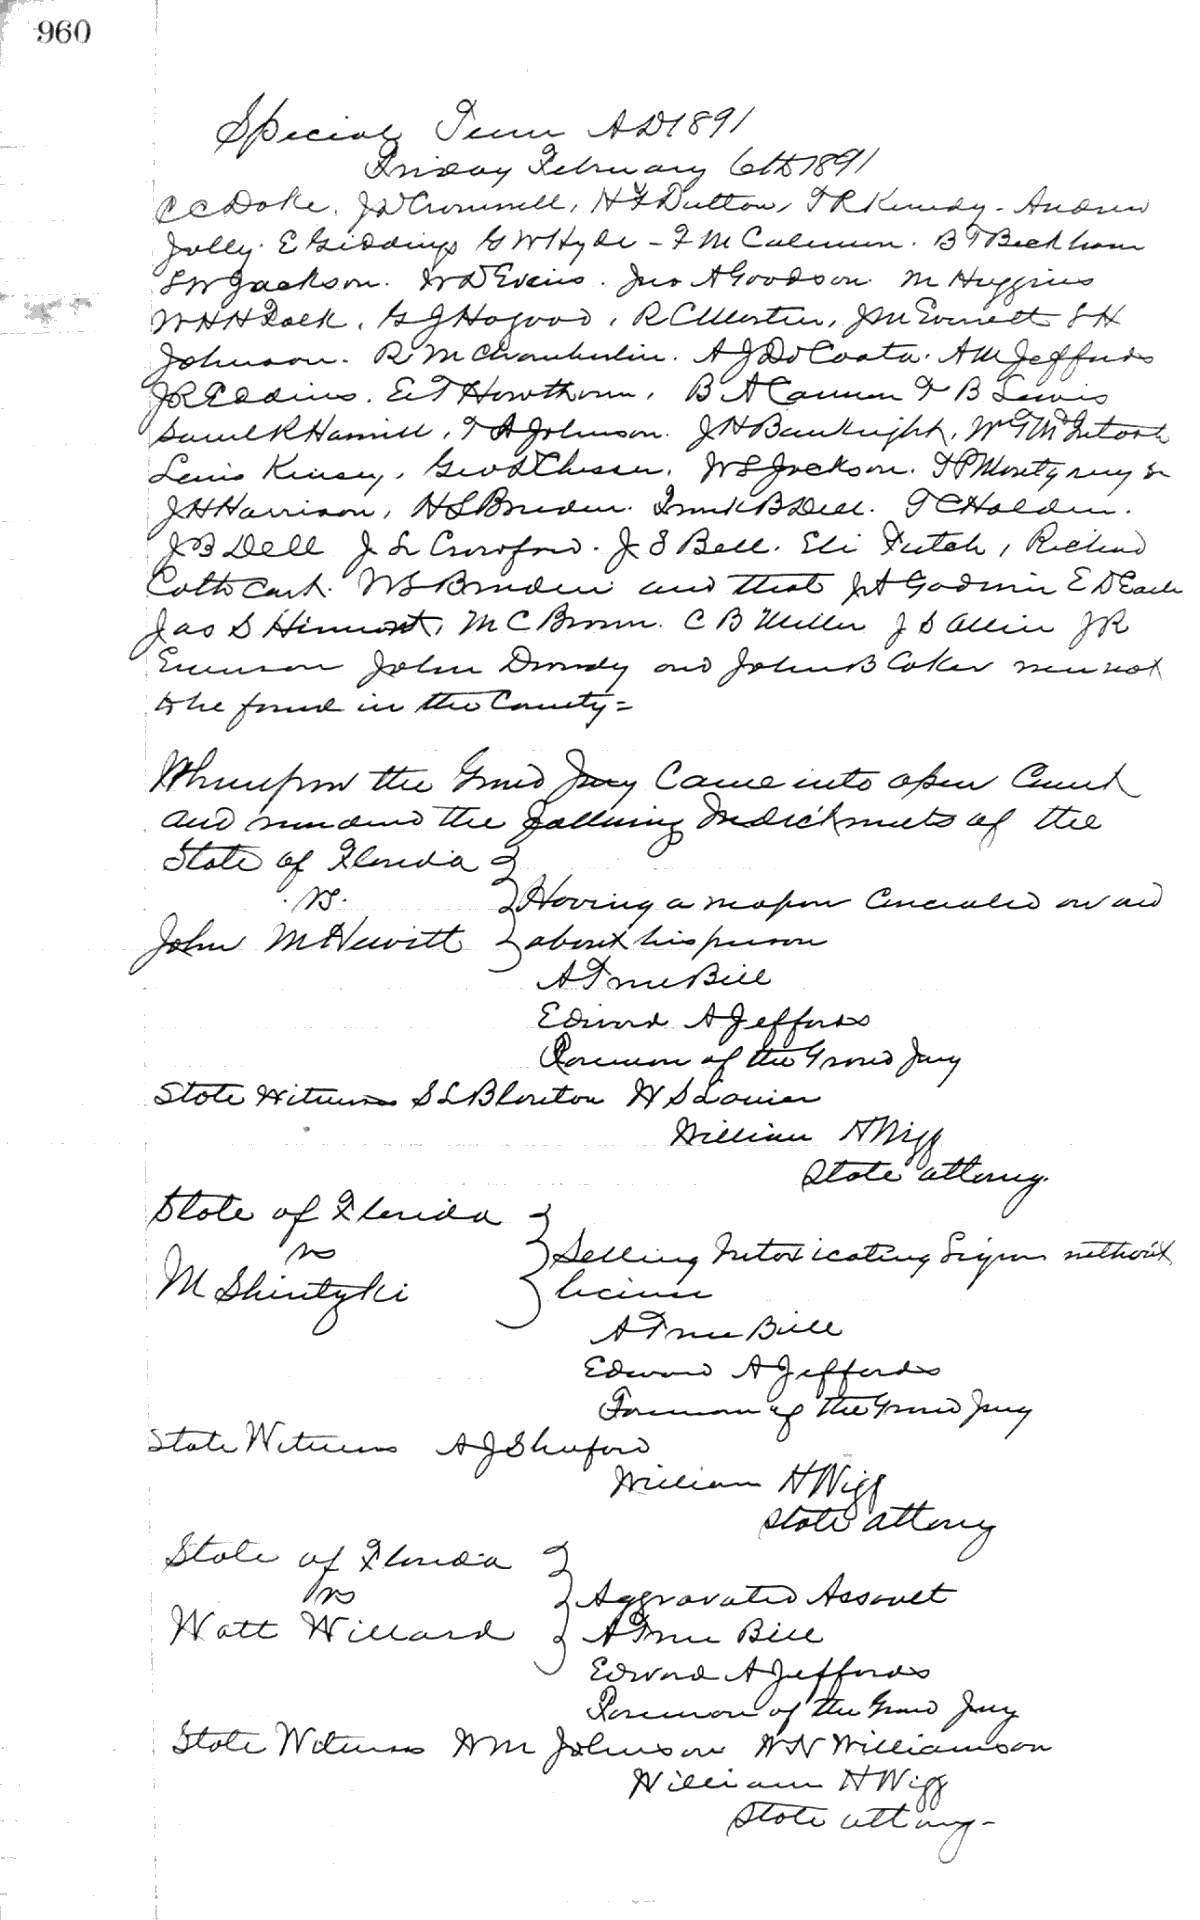 960
Special Term AD 1891
Friday February 6th 1891
C C Doke, J W Cromwell, H F Dutton, T R Kenedy - Andrew
Jolly. E Giddings G W Hyde - F M Calemon. B T Beckham
S W Jackson. W D Evins. Jno A Goodson M Huggins
W H H Folk, G J Hagood, R C Martin, J M Everett S H
Johnson. R M Chamberlin. A J DaCosta. A M Jeffords
J R Eddins. E T Howthorn, B A Cannon T B Lewis
Saml R Harrill, T A Johnson. J H Bauknight, W T McIntosh
Lewis Kinsey, Geo S Chesser, W S Jackson. T P Montgomery Sr
J H Harrison, H S Bruden. Frank B Dell. T C Holden.
J B Dell J L Crawford. J S Bell. Eli Futch, Richard
Cothcart. W S Bruden and that J A Godwin E D Earle
Jas S M C Brown. C B Miller J S Allen J R
Evenson John Dowdy and John B Coker were not
to be found in the County =
Whereupon the Grand Jury Came into open Court
and rendered the following Indictments of the
State of Florida
vs.
Having a weapon Concealed on and
John M Hewitt about his person
A True Bill
Edward A Jeffords
Foreman of the Grand Jury
State Witness S L Blonton H S Lanier
William H Wigg
State attorny.
State of Florida
vs
Selling Intoxicating Liquor without
M Shintzki licinse
A True Bill
Edward A Jeffords
Foreman of the Grand Jury
State Witness A J Shuford
William H Wigg
State attorny
State of Florida
vs
Aggravated Assault
Watt Willard A True Bill
Edward A Jeffords
Foreman of the Grand Jury
State Witness Wm Johnson W N Williamson
William H Wigg
State attorny -